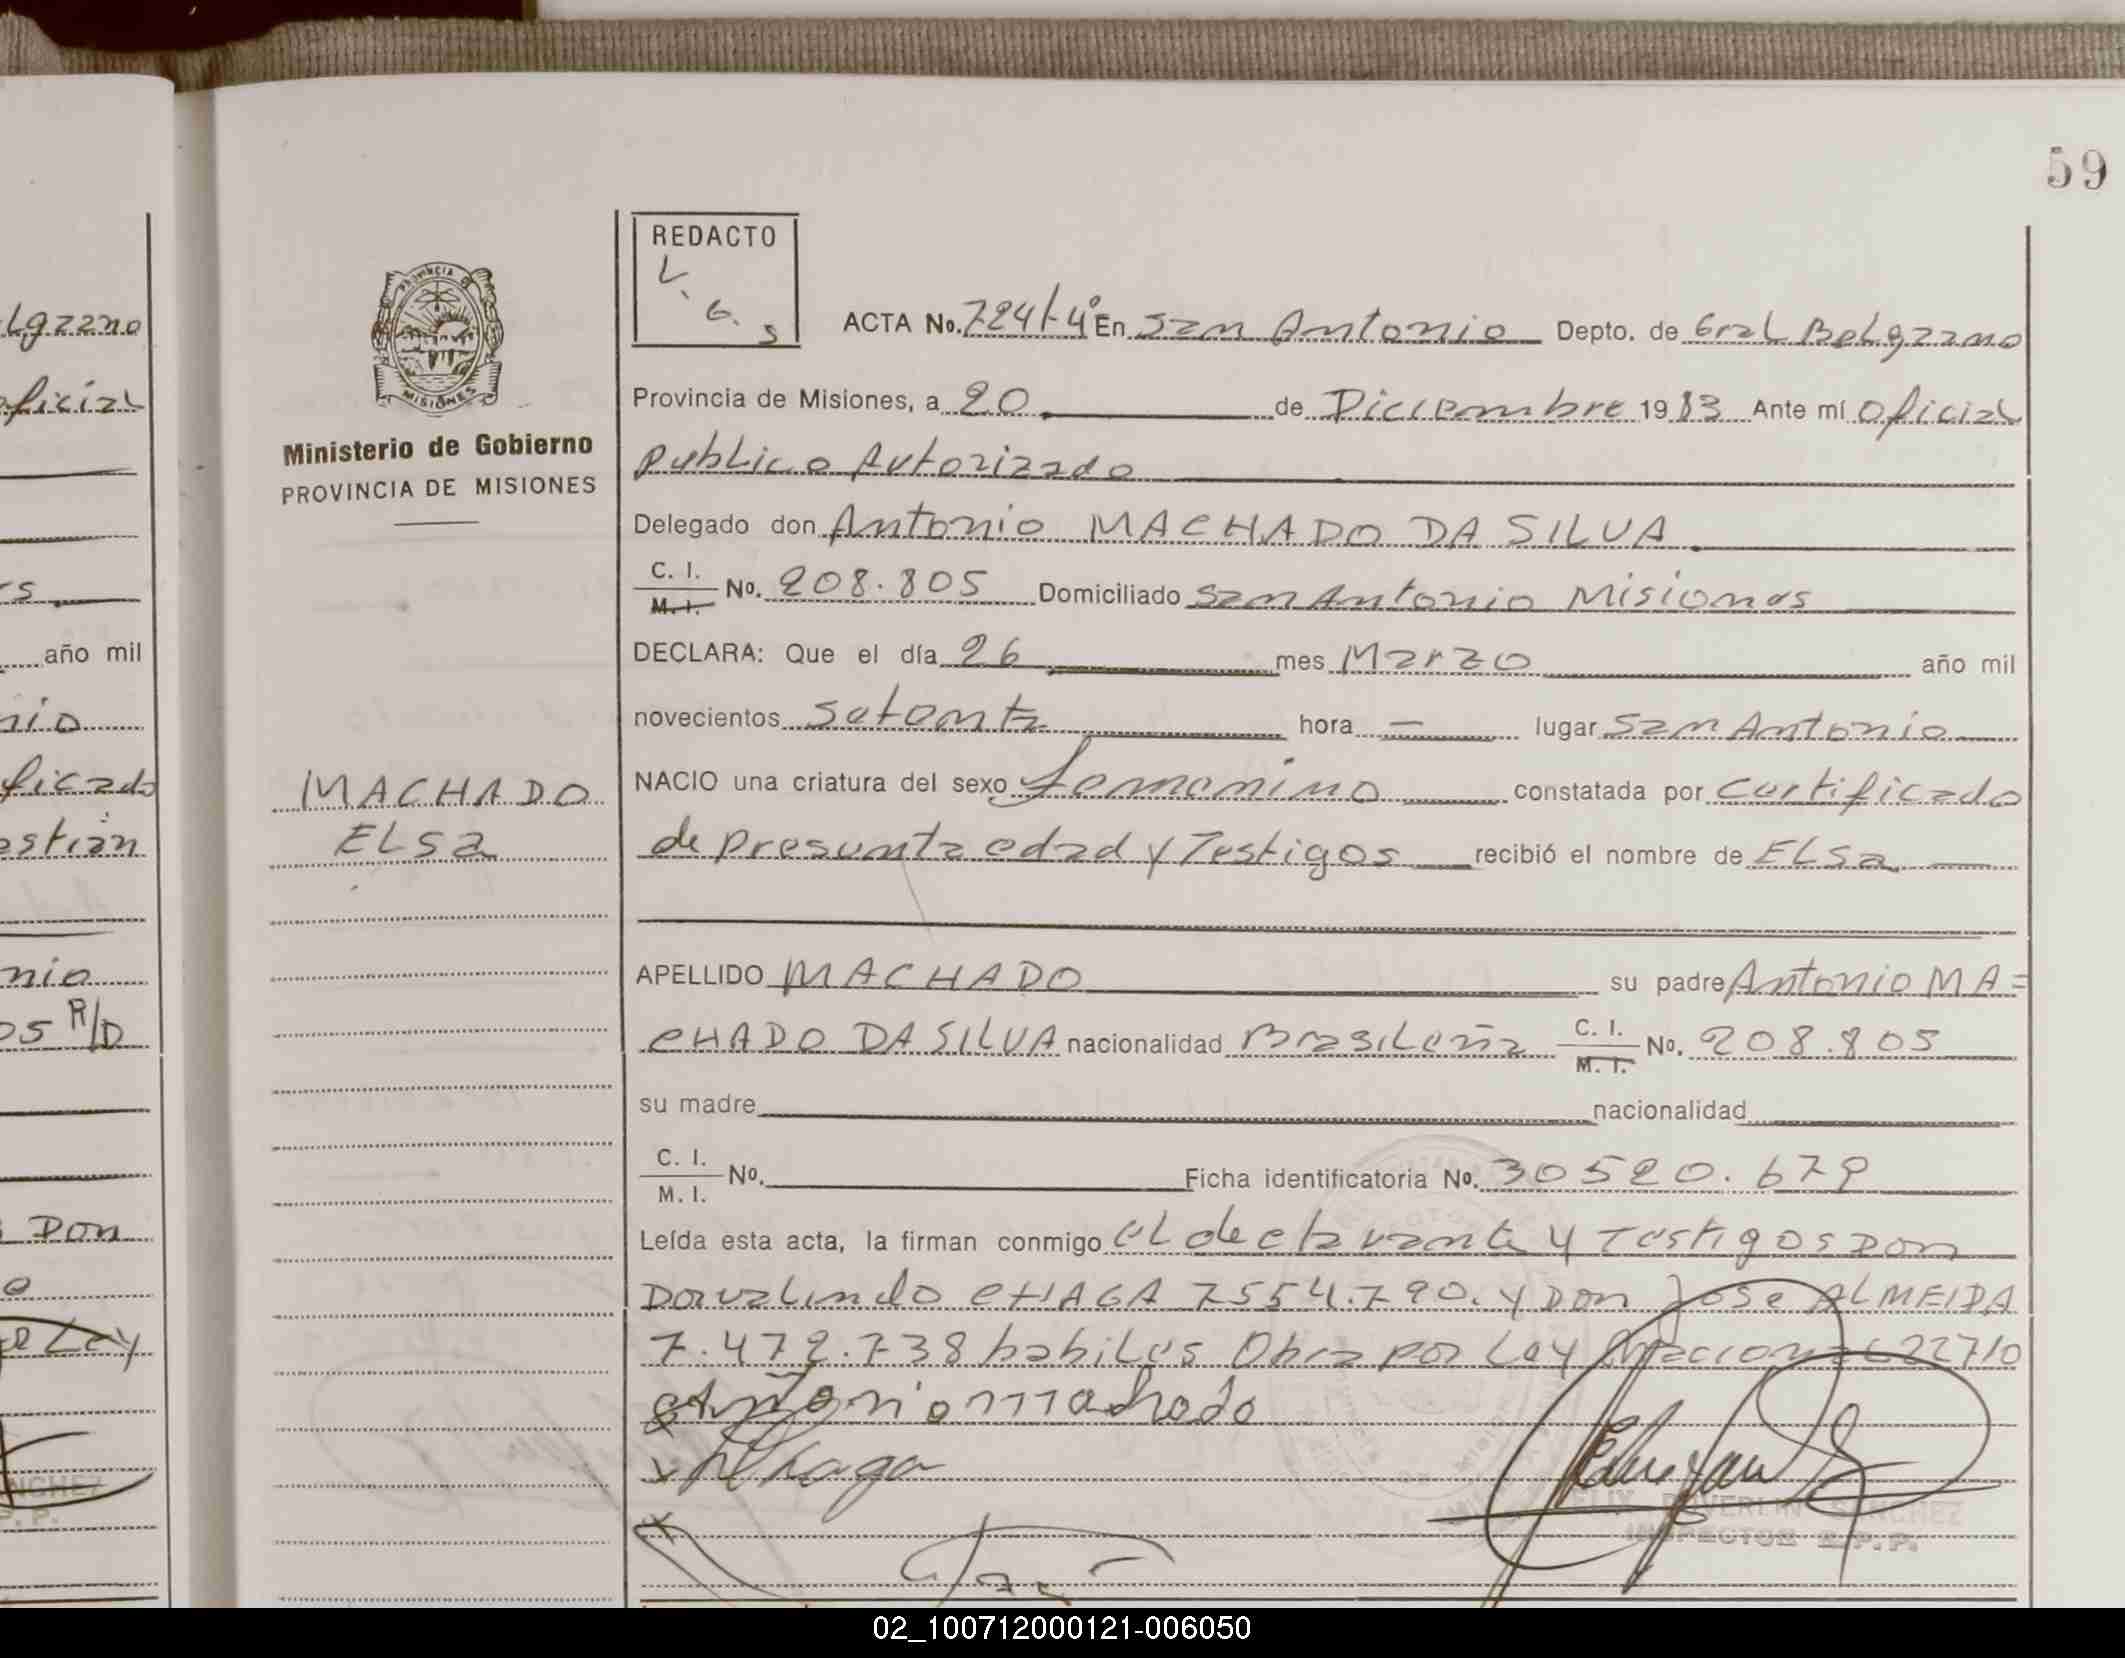 59
REDACTO
L.
G.
S
ACTA No. 724/-4º En San Antonio Depto. de Gral Belgrano
Provincia de Misiones, a 20 de Diciembre 1983 Ante mí Oficial
publico Autorizado
Delegado don Antonio MACHADO DA SILVA
C. I.
M. I.
No. 208.805 Domiciliado San Antonio Misiones
DECLARA: Que el día 26 mes Marzo año mil
novecientos setenta hora — lugar San Antonio
NACIO una criatura del sexo femenino constatada por certificado
de presunta edad y Testigos recibió el nombre de ELsa
APELLIDO MACHADO su padre Antonio MA=
CHADO DA SILVA nacionalidad Brasileña C. I. No. 208.805
M. I.
su madre nacionalidad
C. I.
M. I.
No. Ficha identificatoria No. 30520.679
Leída esta acta, la firman conmigo el declarante y Testigos Don
Dorvalindo CHAGA 7554.790. y Don Jose ALMEIDA
7.472.738 habiles Obra por Ley Nacional 22710
Antonio machado
Chaga
FELIX DUVERLIN SANCHEZ
INSPECTOR R.P.P.
PROVINCIA DE
MISIONES
Ministerio de Gobierno
PROVINCIA DE MISIONES
MACHADO
ELsa
lgrano
oficial
s
año mil
nio
ficado
estian
nio
os R/D
Don
e
Ley
NCHEZ
P.P.
02_100712000121-006050